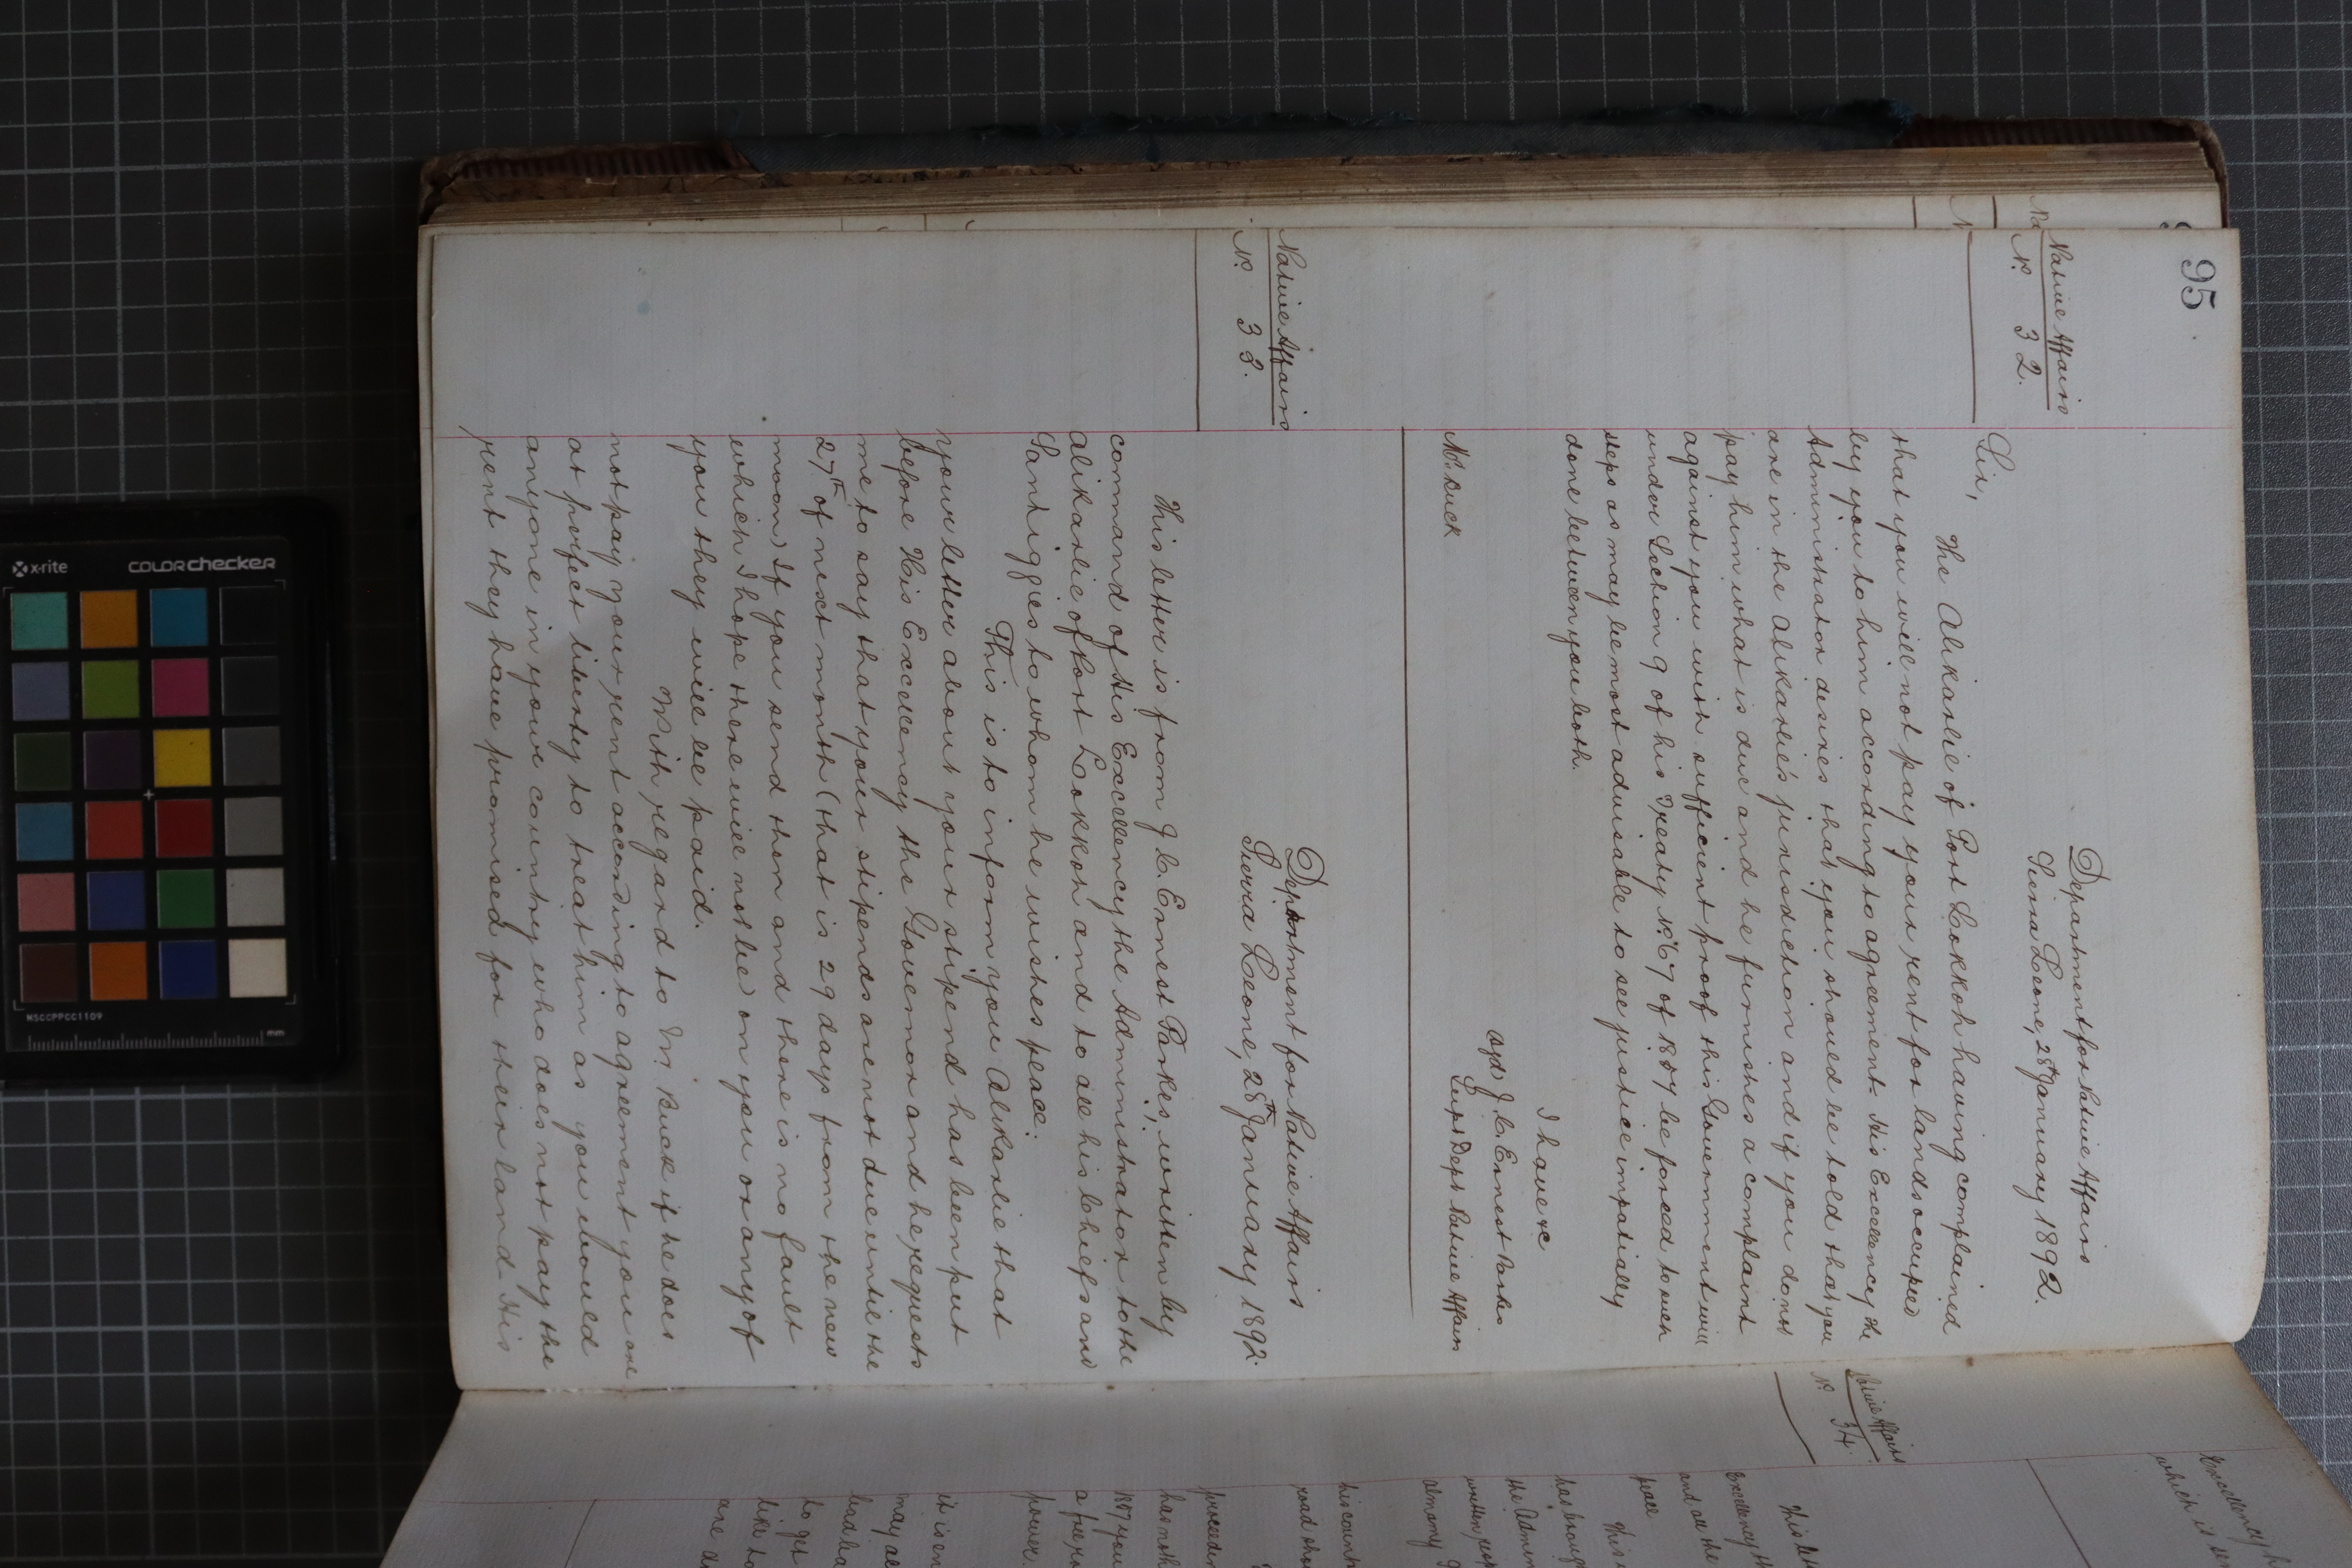 95
Native Affairs
No. 32.
Department for Native Affairs
Sierra Leone, 28th January 1892.
Sir,
The Alikarlie of Port Lokkoh having complained
that you will not pay your rent for lands occupied
by you to him according to agreement. His Excellency the
Administrator desires that you should be told that you
are in the Alikarlie's jurisdiction and if you do not
pay him what is due and he furnishes a complaint
against you with sufficient proof this Government will
under Section 9 of his Treaty No. 67 of 1887 be forced to such
steps as may be most advisable to see justice impartially
done between you both.
I have &c
sgd) J. C. Ernest Parkes
Supt Dept Native Affairs
Mr. Buck
Native Affairs
No. 32.
Department for Native Affairs
Sierra Leone, 28th January 1892.
This letter is from J. C. Ernest Parkes, written by
command of His Excellency the Administrator to the
Alikarlie of Port Lokkoh and to all his Chiefs and
Santiggies to whom he wishes peace.
This is to inform you Alikarlie that
your letter about your stipend has been put
before His Excellency the Governor and he requests
me to say that your stipends are not due until the
27th of next month (that is 29 days from the new
moon) If you send then and there is no fault
which I hope there will not be) on you or any of
you they will be paid.
With regard to Mr. Buck if he does
not pay your rent according to agreement you are
at perfect liberty to treat him as you would
anyone in your country who does not pay the
rent they have promised for their land. His
Native Affairs
No. 34.
Excellency
which is
This lett
Excellency th
and all the
peace
This
has broug
the Admin
written
almany
his count
road
proceedin
has
1887 you
a
power.
it is en
may
to get
like to
are